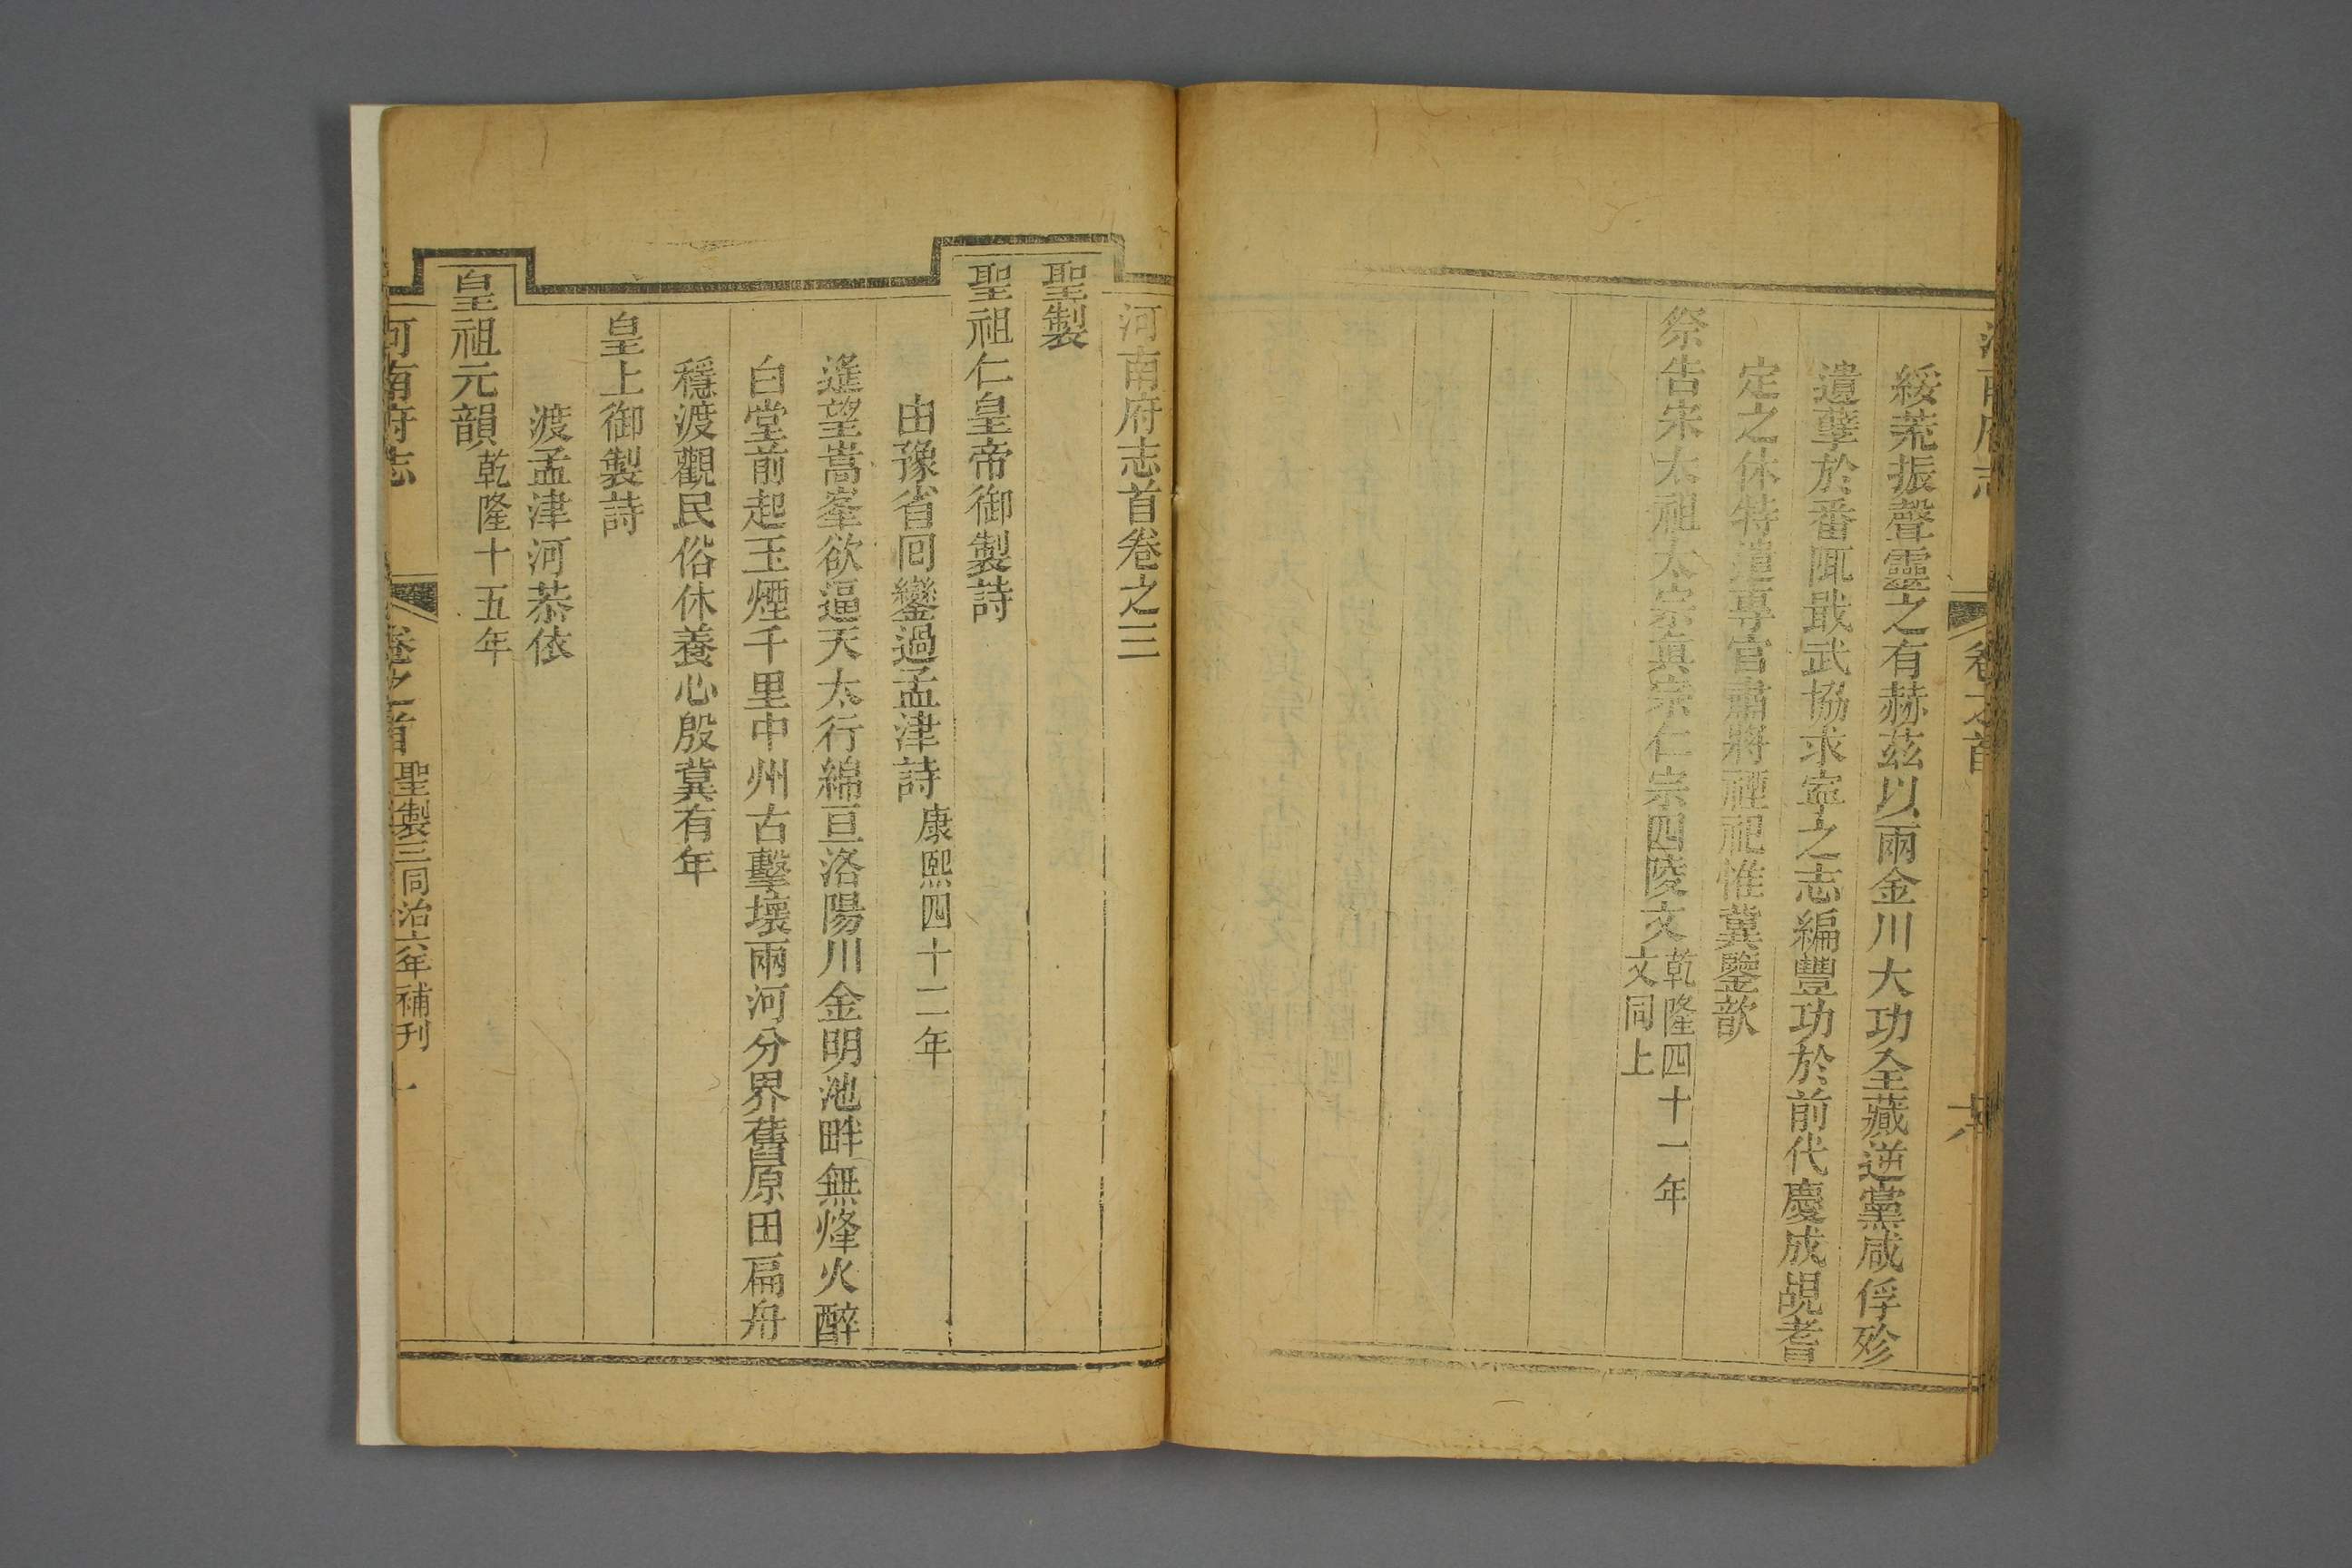 綏荒振聲靈之有赫茲以兩金川大功全蕆逆黨咸俘殄
遺孽於番陬戢武協求寧之志編豐功於前代慶成覘耆
定之休特遣專官肅將禋祀惟冀鑒歆
祭告宋太祖太宗真宗仁宗四陵文乾隆四十一年
文同上
河南府志首卷之三
聖製
聖祖仁皇帝御製詩
由豫省囘鑾過孟津詩康熙四十二年
遙望嵩峯欲逼天太行綿亘洛陽川金明池畔無烽火醉
白堂前起玉煙千里中州古擊壤兩河分界舊原田扁舟
穩渡觀民俗休養心殷冀有年
皇上御製詩
渡孟津河恭依
皇祖元韻乾隆十五年
河南府志 卷之首聖製三同治六年補刊 一